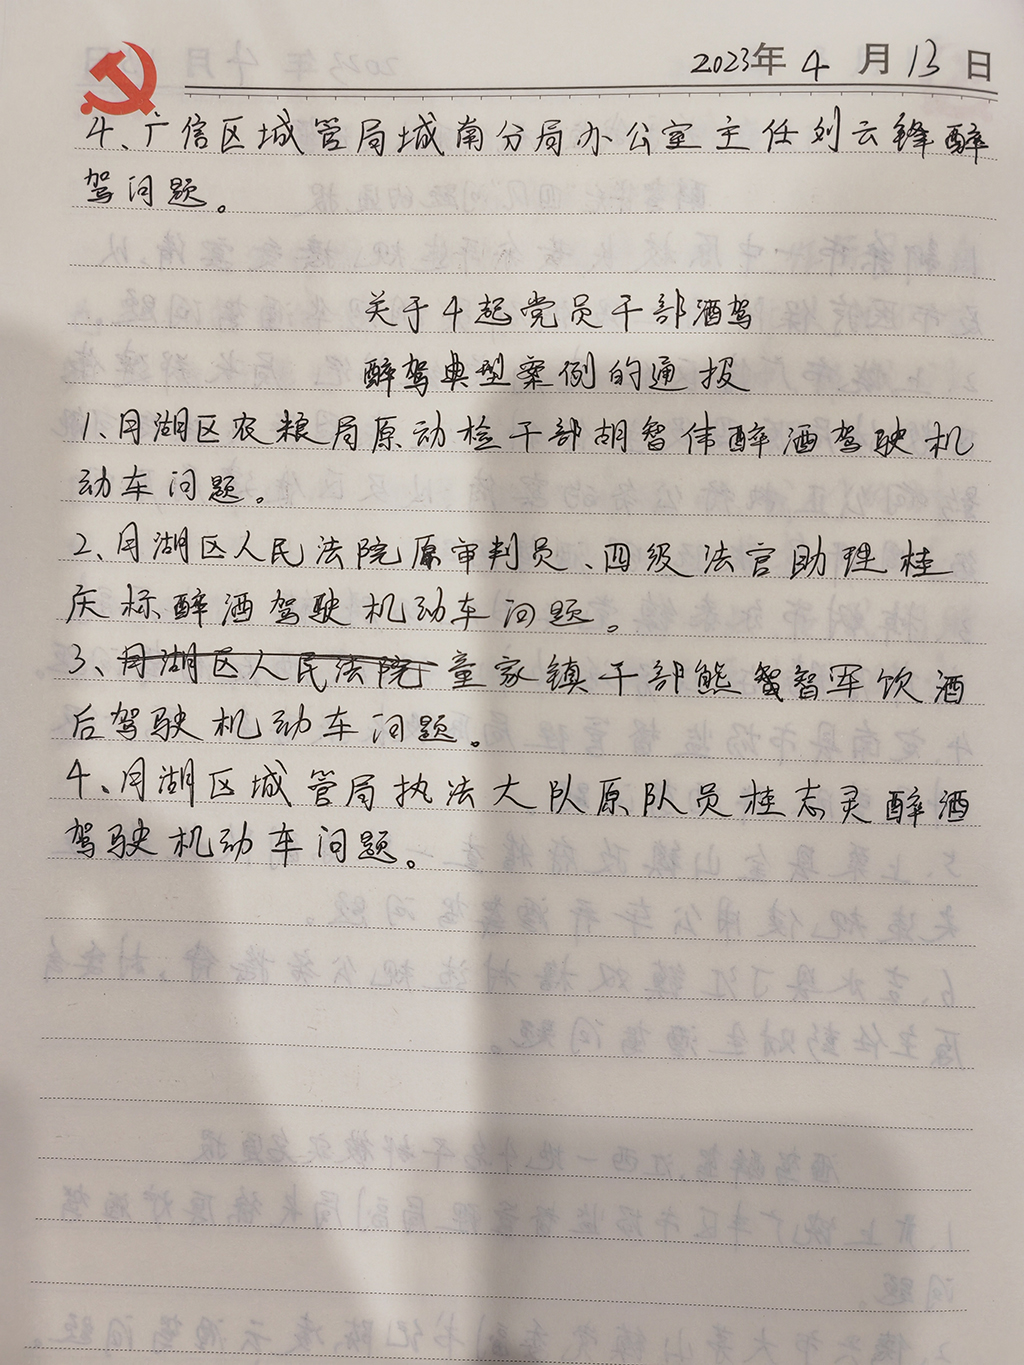 2023年4月13日
4、广信区城管局城南分局办公室主任刘云锋醉
驾问题。
关于4起党员干部酒驾
醉驾典型案例的通报
1、月湖区农粮局原动检干部胡智伟醉酒驾驶机
动车问题。
2、月湖区人民法院原审判员、四级法官助理桂
庆标醉酒驾驶机动车问题。
3、月湖区人民法院童家镇干部熊智军饮酒
后驾驶机动车问题。
4、月湖区城管局执法大队原队员桂志灵醉酒
驾驶机动车问题。